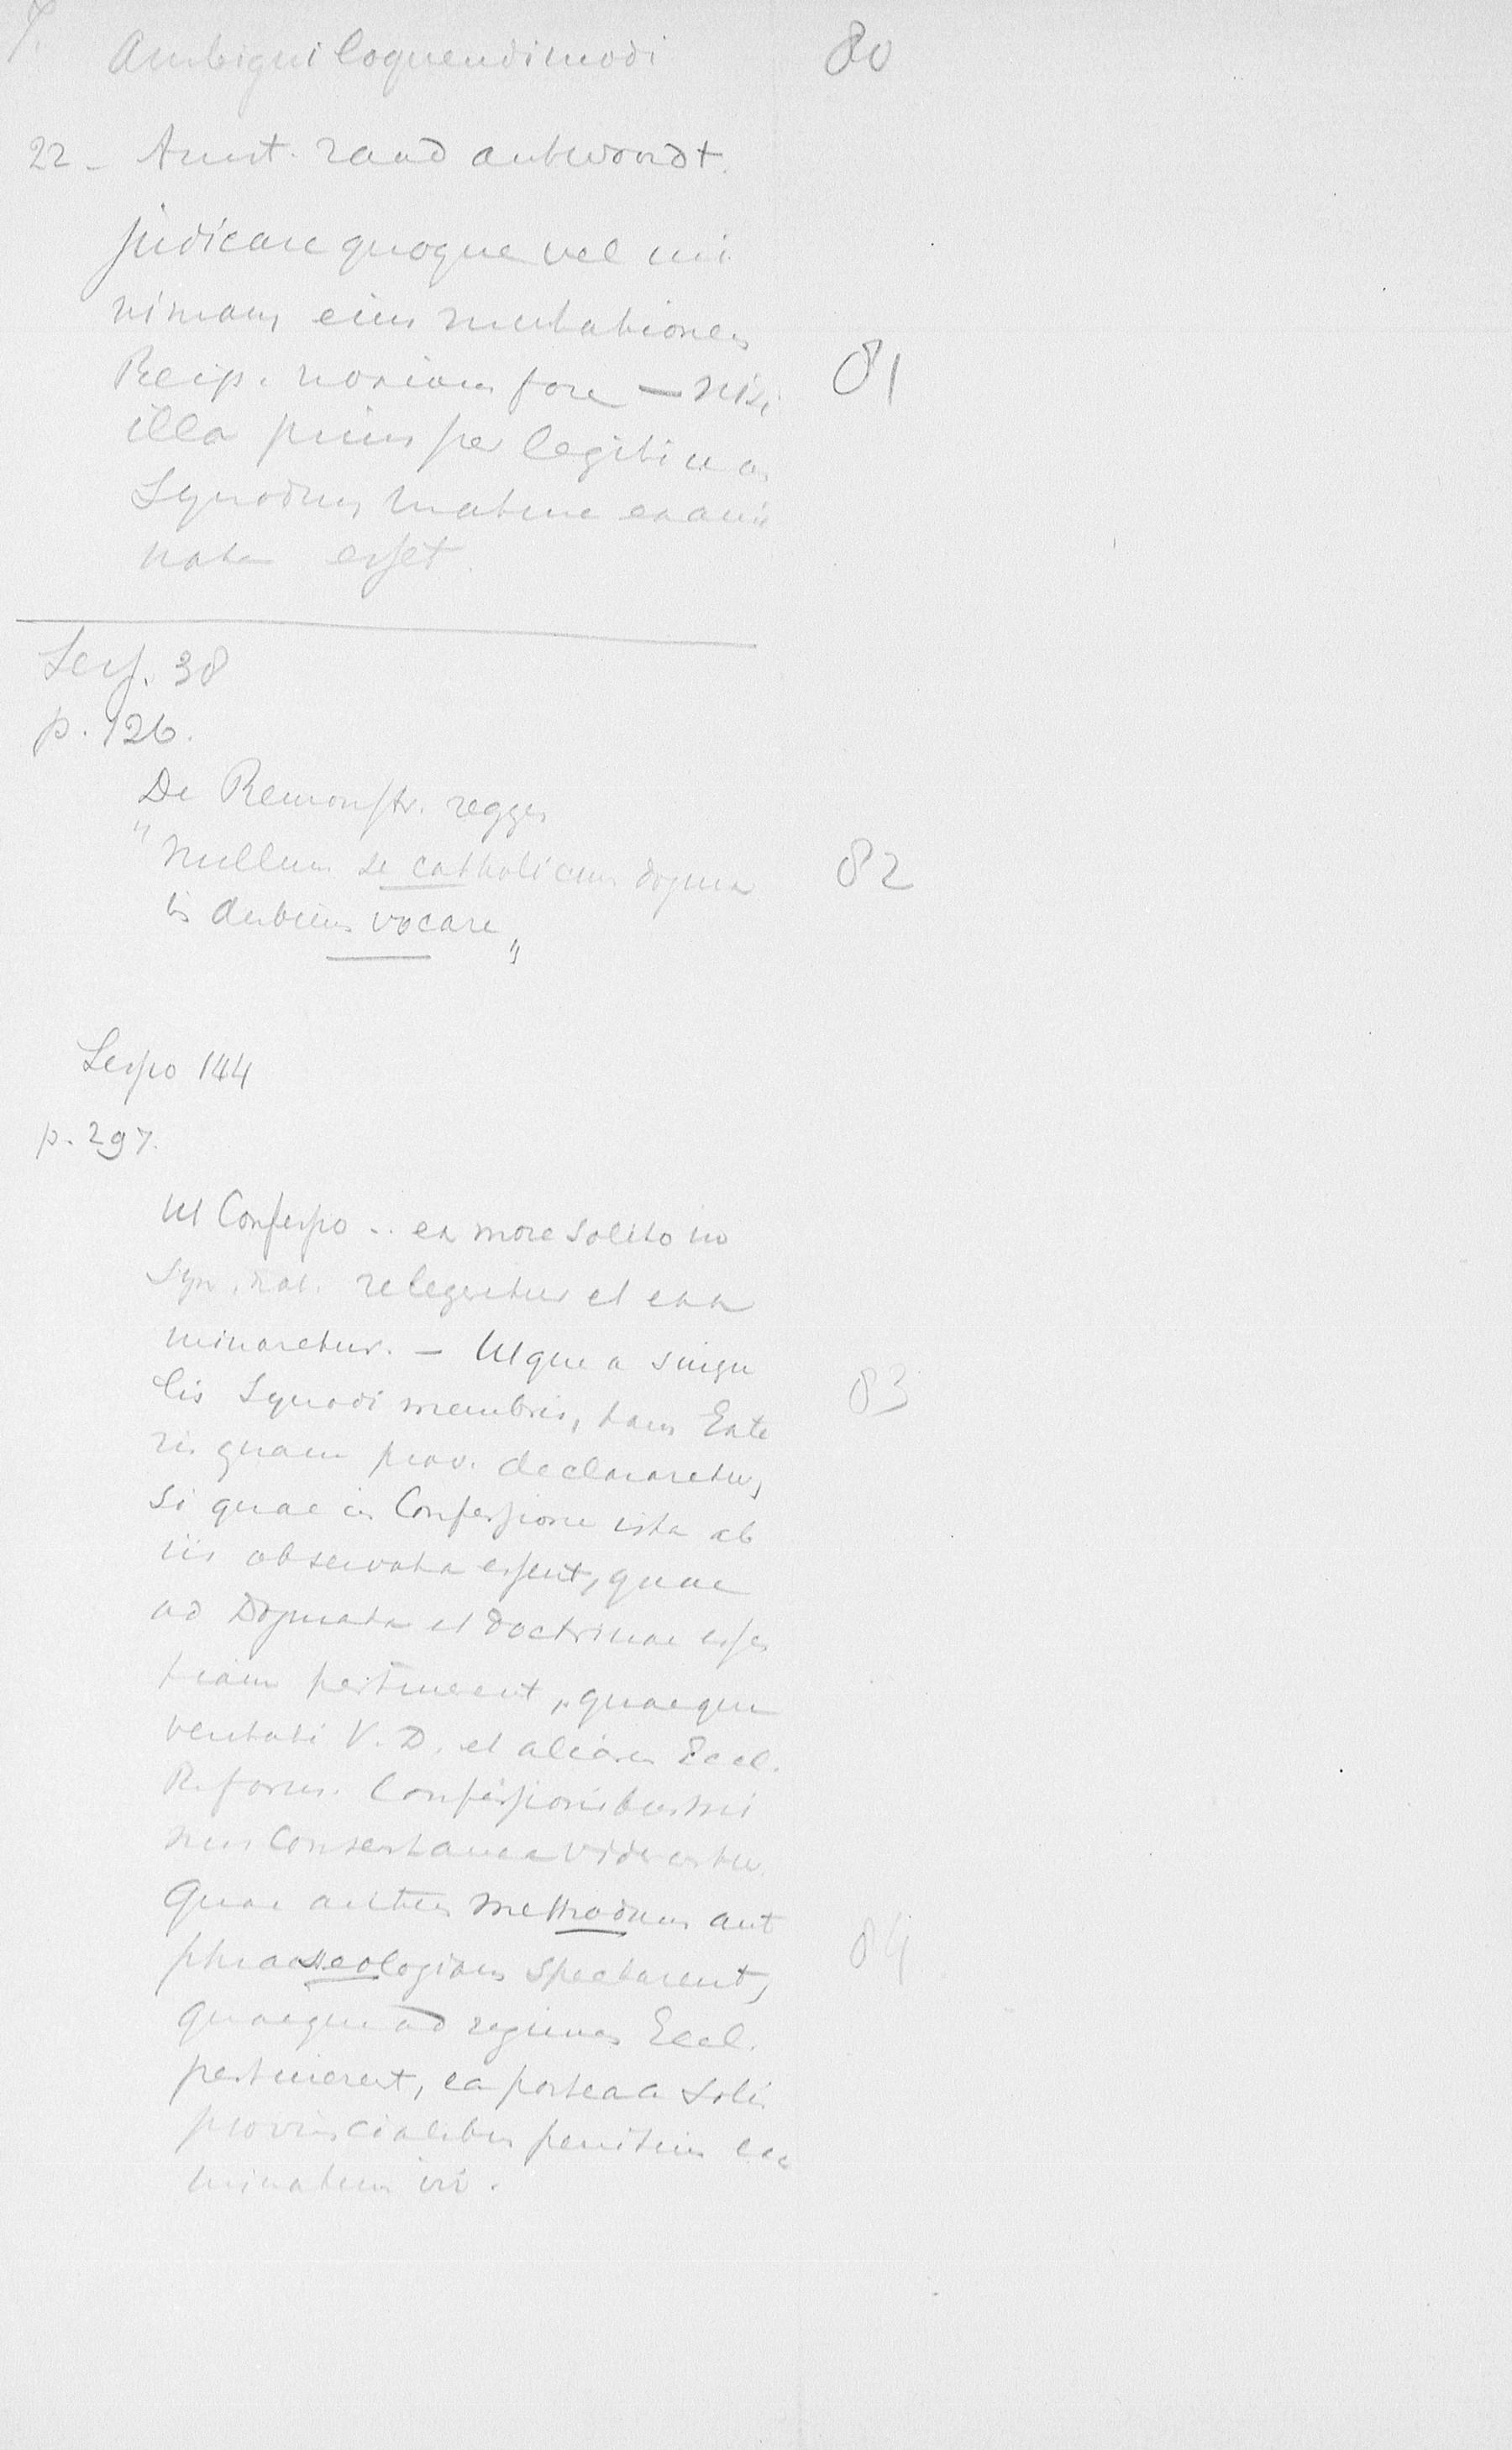 7.
Ambigui loquendi modi 80
22 - Amst. raad antwoordt.
judicare quoque vel mi
nimam eius mutationem
Reip. noxiam fore — nisi 81
illa prius per legitimam
Synodum mature exami
nata esset.
Sess. 38
p. 126.
De Remonstr. zeggen
"Nullum se catholicum dogma 82
in dubium vocare"
Sessio 144
p. 297.
Ut Confessio .. ex more solito in
Syn. nat. relegeretur et exa
minaretur. - Utque a singu
lis Synodi membris, tam Exte 83
ris quam prov. declararetur,
si quae in Confessione ista ab
iis observata essent, quae
ad Dogmata et doctrinae essen
tiam pertinerent, quaeque
veritati V. D. et aliarum Eccl.
Reform. Confessionibus mi
nus consentanea viderentur.
Quae autem methodum aut 84
phraseologiam spectarent,
quaeque ad regimen Eccl.
pertinerent, ea postea a solis
provincialibus penitius exa
minatum iri.